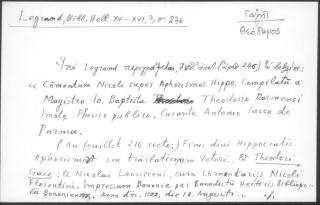 Legrand, Bibl. Hell. XV–XVI, 3, σ. 276
Γαζῆς
Θεόδωρος
Ὑπὸ Legrand περιγράφεται, τὸ βιβλίον:
« Comentum Nicoli super Aphorismos Hippo. Compilata a
Magistro Io. Baptista Theodosio Parmensi
Phisico publico. Curante Antonio Sacco de
Parma.
(Au feuillet 216 recto:) Finis divi Hippocratis
Aphorismos traslationum Veteris, & Theodori
Gaze: & Nicolai Leoniceni, cum Comentarijs Nicoli
Florentini. Impressum Bononie per Benedictū Hectoris Bibliopo-
lā Bononiensē, Anno dm̄. 1522, die 12. Augusti. »